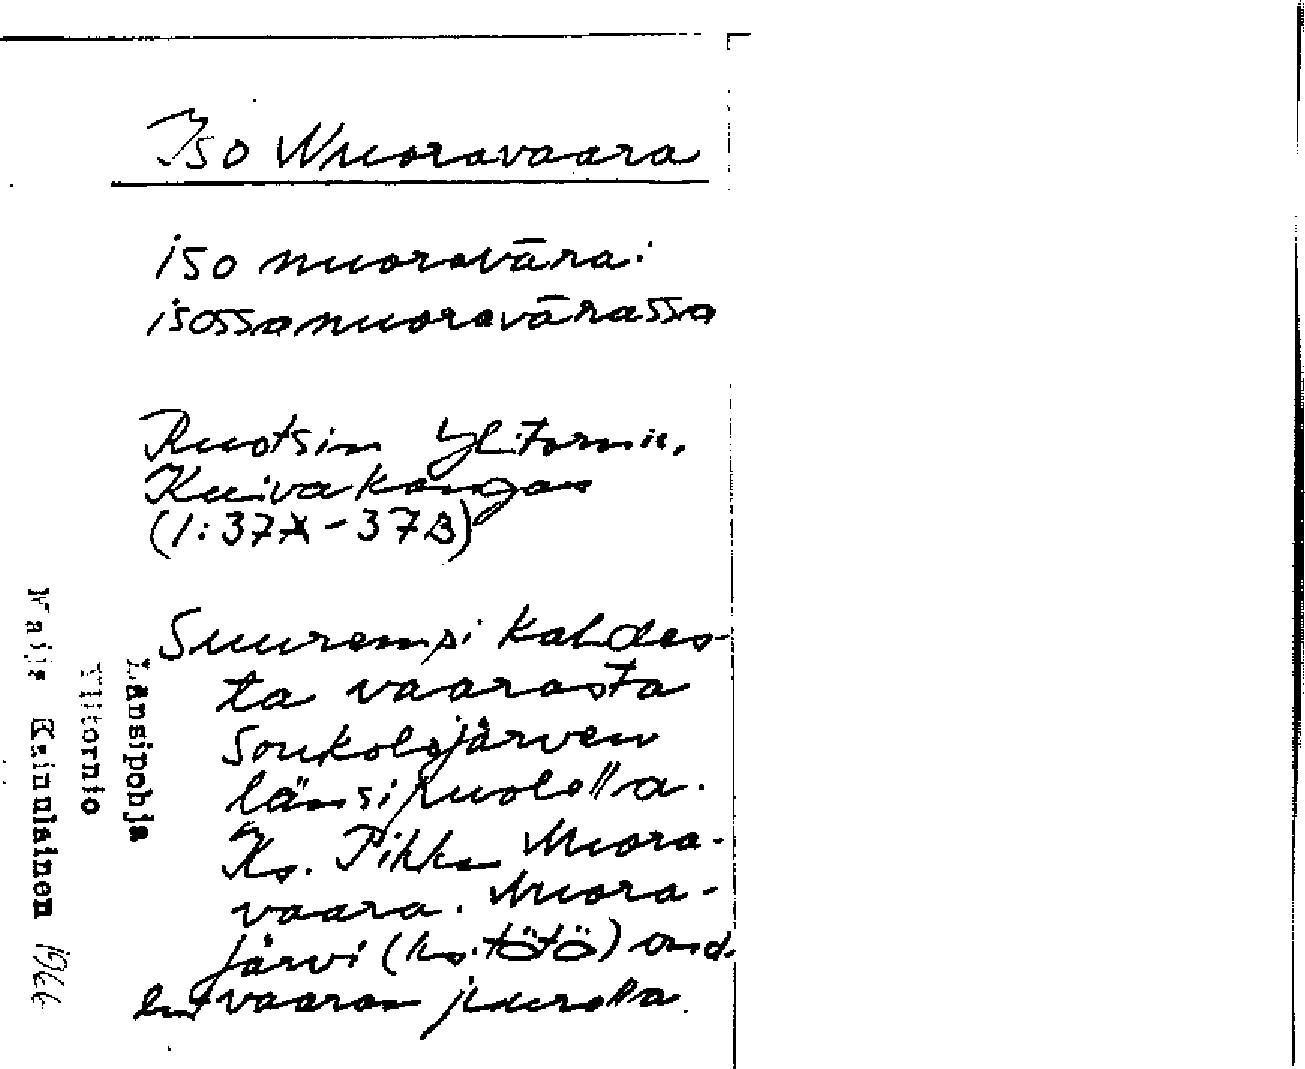 Iso Nuoravaara
iso nuoravāra:
isossanuoravārassa
Ruotsin Ylitornio,
Kuivakangas
(1:37A-37B)
Suurempi kahdes-
ta vaarasta
Soukolojärven
länsipuolella.
Ks. Pikku Nuora-
vaara. Nuora-
järvi (ks. tötö)
vaaran juurella.
Länsipohja
Ylitornio
Maija Kainulainen 1966